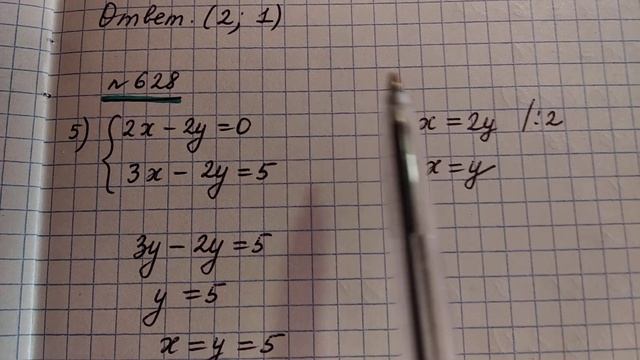 Ответ. (2; 1)
№628
5) {2x - 2y = 0
3x - 2y = 5
x = 2y /:2
x = y
3y - 2y = 5
y = 5
x = y = 5